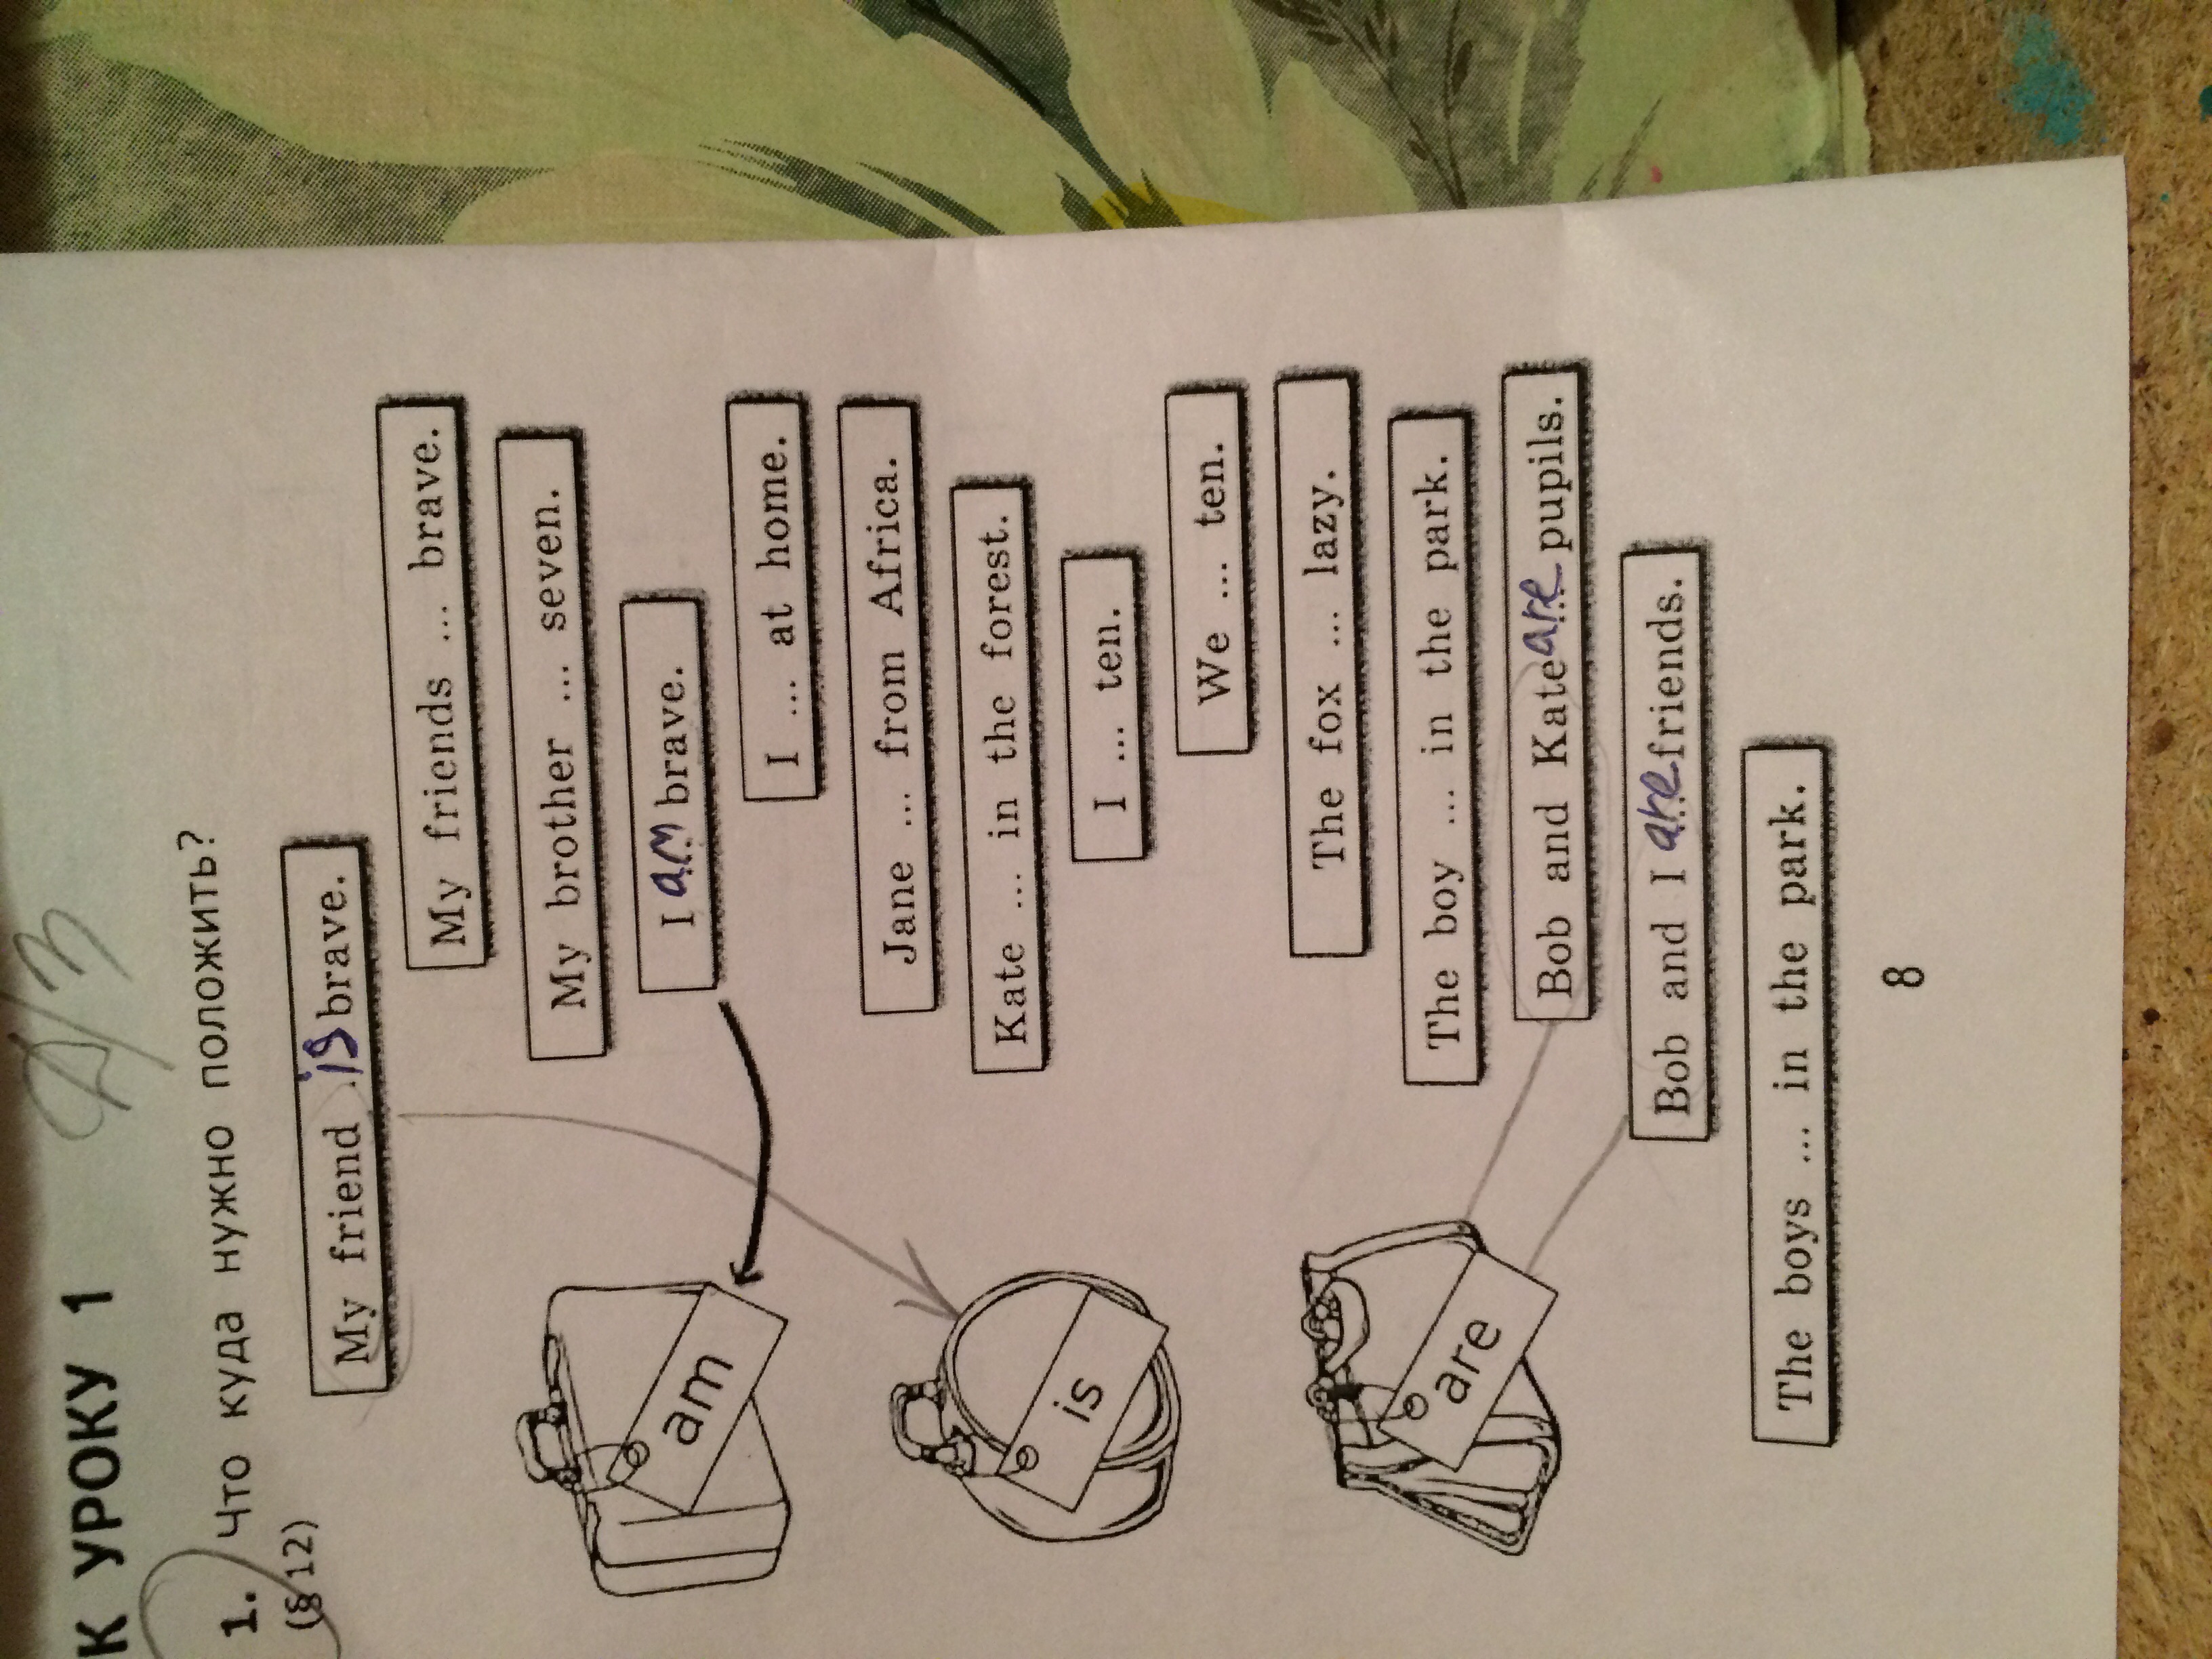 К УРОКУ 1 Д/З
1. Что куда нужно положить?
(§ 12)
My friend is brave.
My friends ... brave.
My brother ... seven.
I am brave.
I ... at home.
Jane ... from Africa.
Kate ... in the forest.
I ... ten.
We ... ten.
The fox ... lazy.
The boy ... in the park.
Bob and Kate are pupils.
Bob and I are friends.
The boys ... in the park.
am
is
are
8